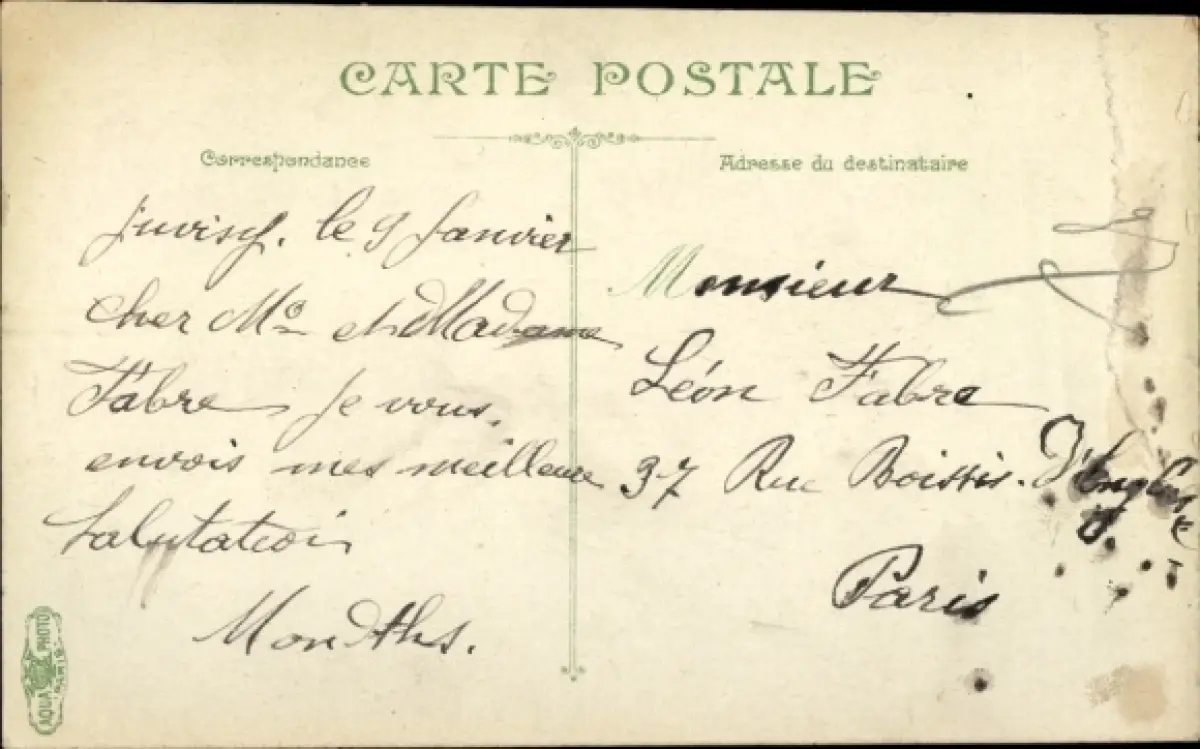 CARTE POSTALE
Correspondance
Juvisy, le 9 Janvier
Cher Mr et Madame
Fabre je vous,
envois mes meilleure
Salutation
Adresse du destinataire
Monsieur
Léon Fabre
37 Rue Boissis. D'Anglas
Paris
AQUA PHOTO
PARIS